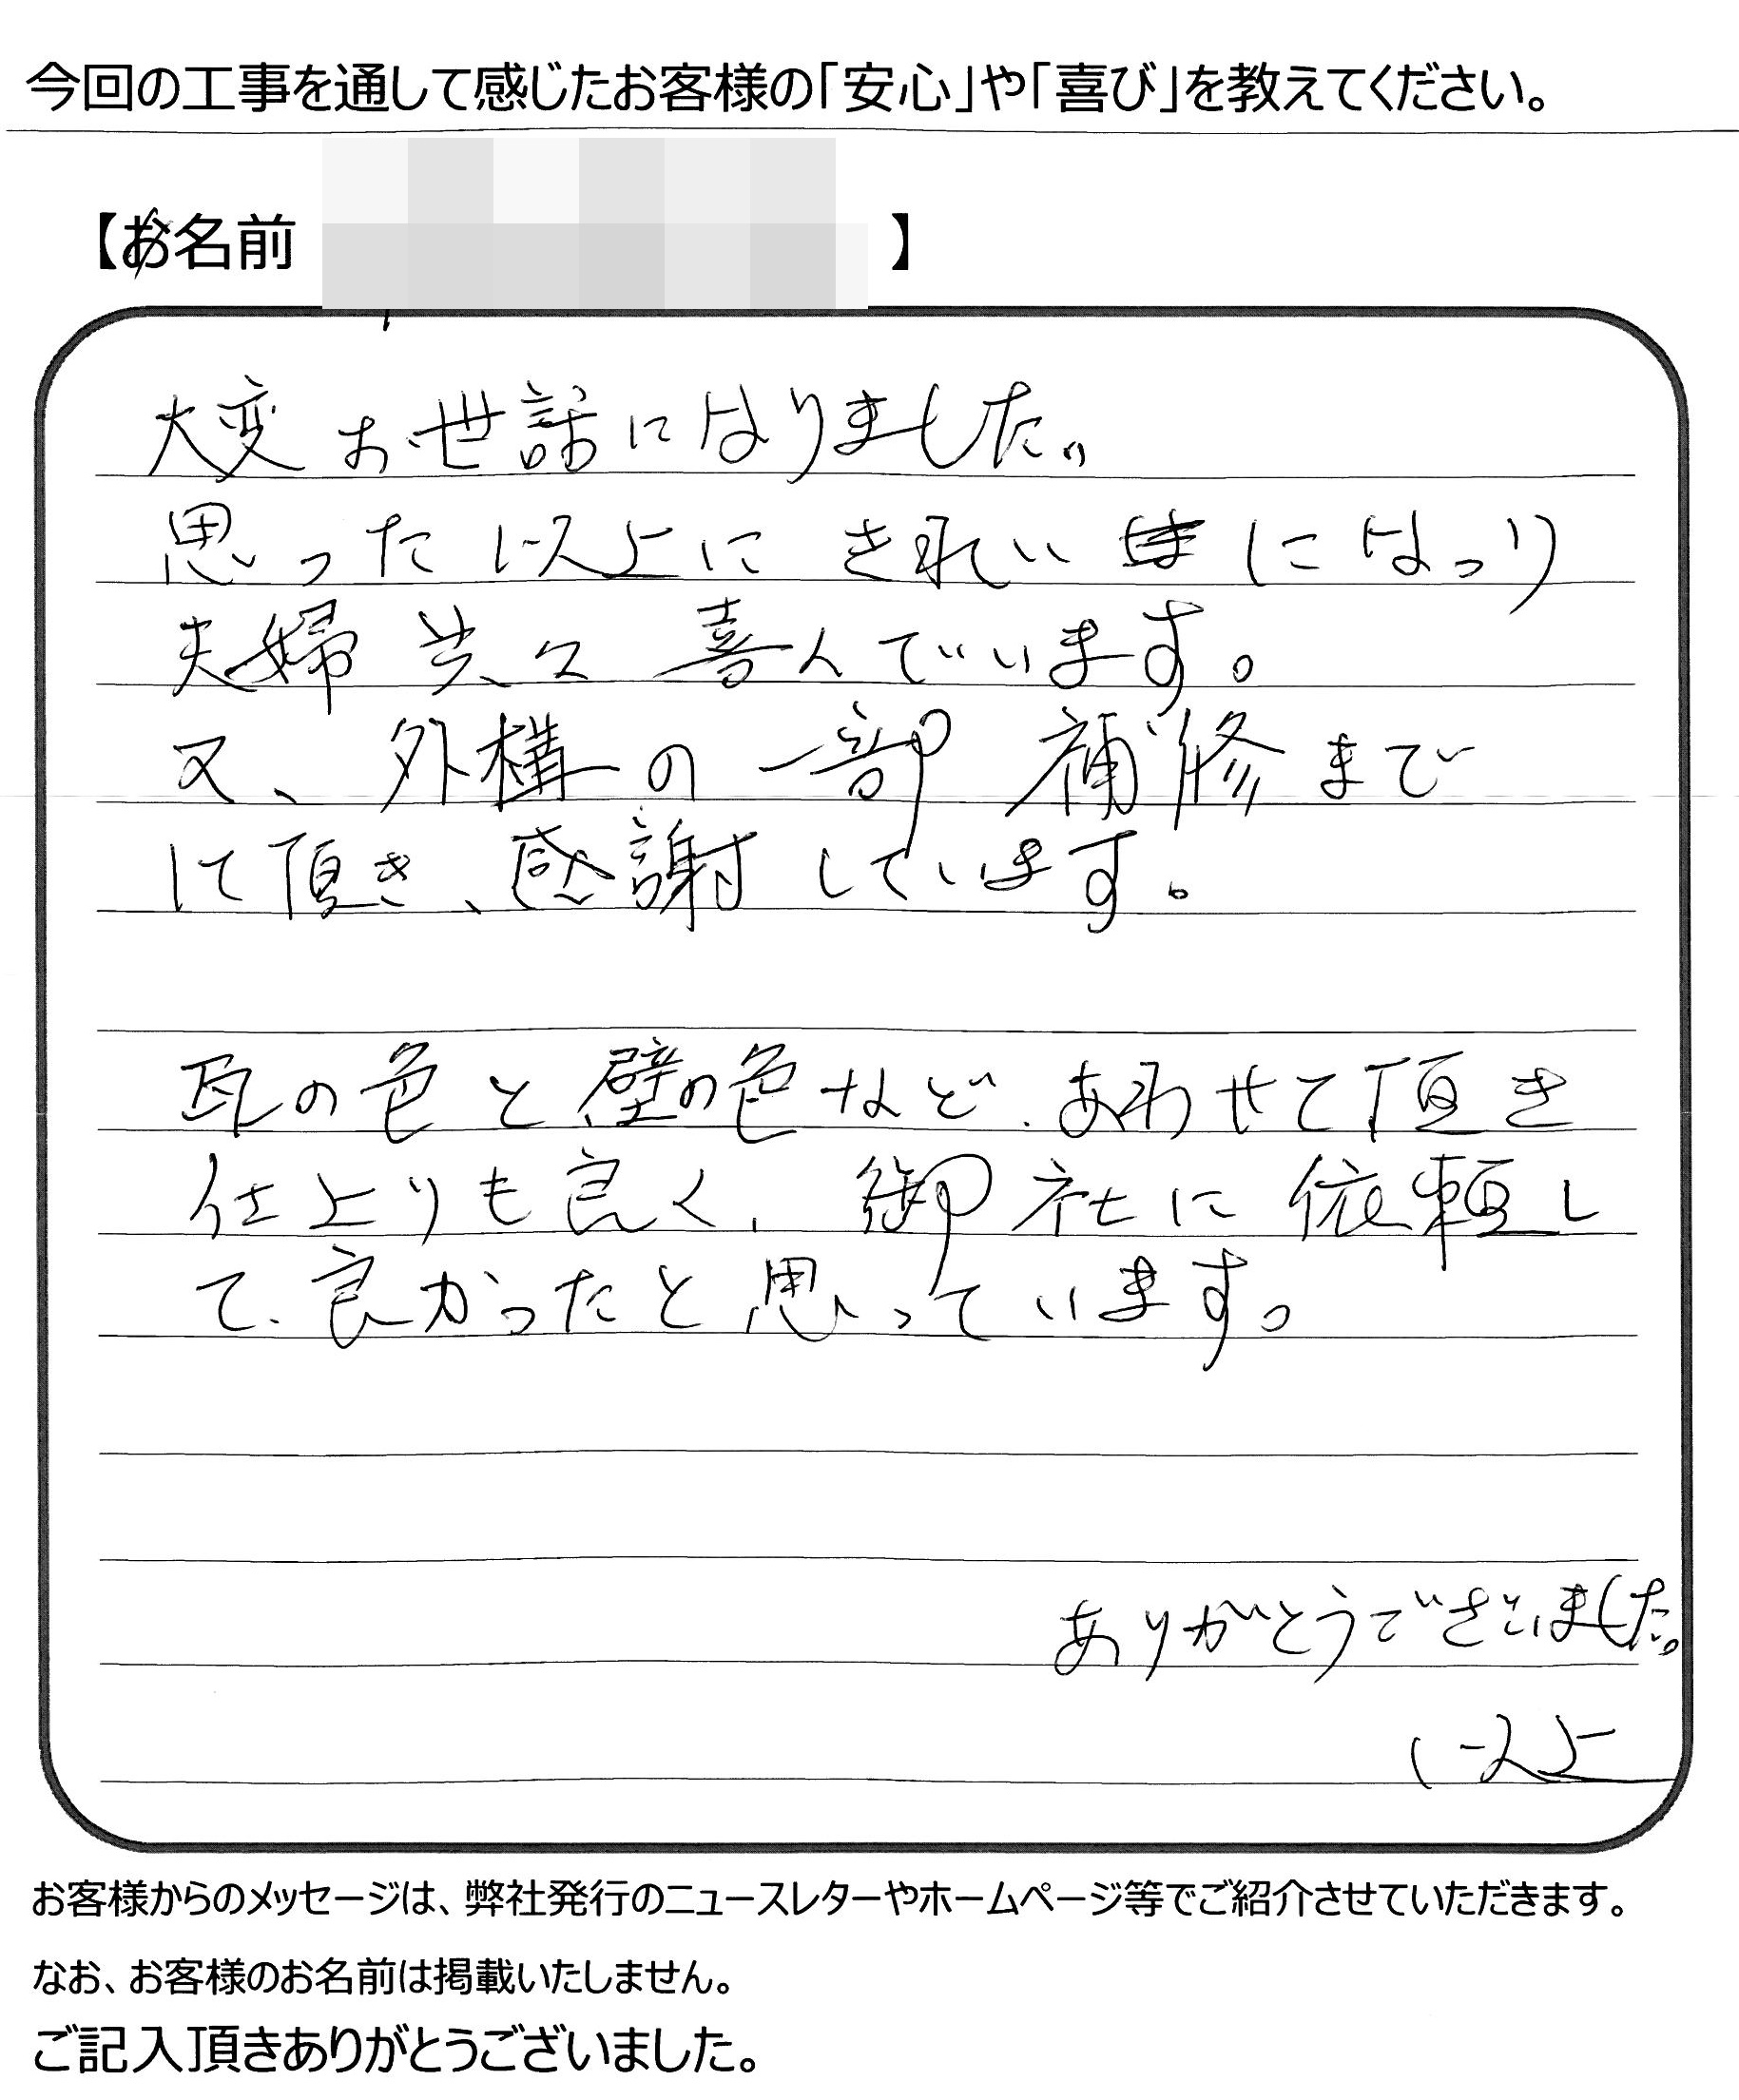 今回の工事を通して感じたお客様の「安心」や「喜び」を教えてください。
【お名前 】
大変お世話になりました。
思った以上にきれいになり
夫婦共々喜んでいます。
又、外構の一部補修まで
して頂き、感謝しています。
瓦の色と壁の色など、あわせて頂き
仕上りも良く、御社に依頼し
て、良かったと思っています。
ありがとうございました。
以上
お客様からのメッセージは、弊社発行のニュースレターやホームページ等でご紹介させていただきます。
なお、お客様のお名前は掲載いたしません。
ご記入頂きありがとうございました。